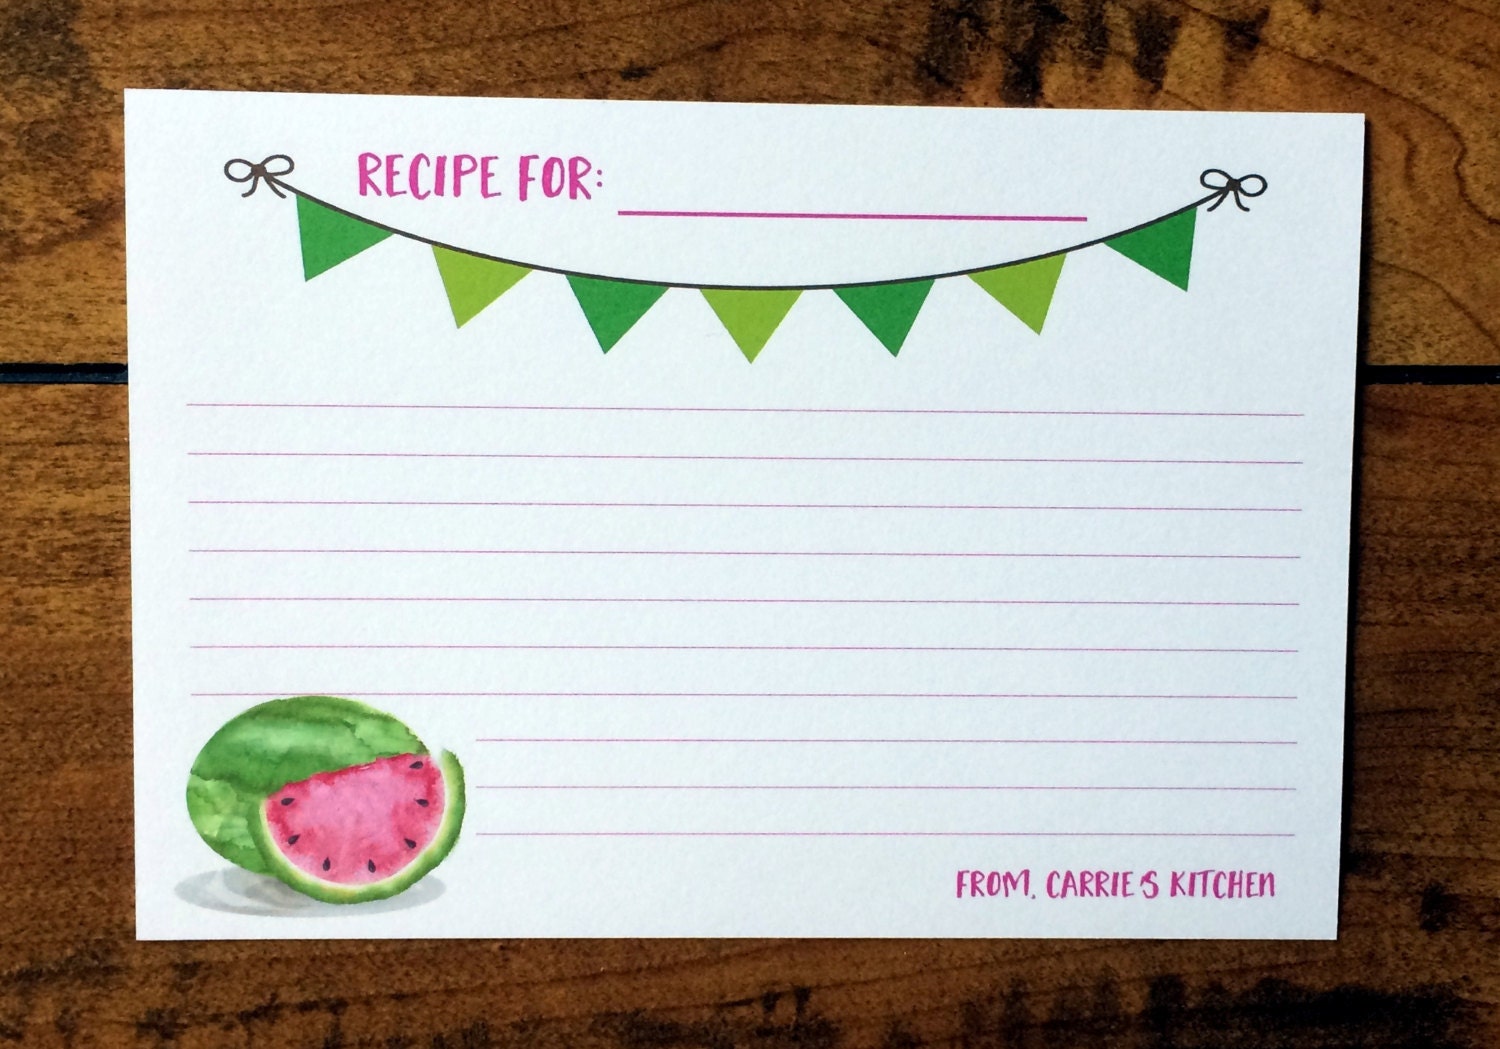 RECIPE FOR:
FROM, CARRIE'S KITCHEN